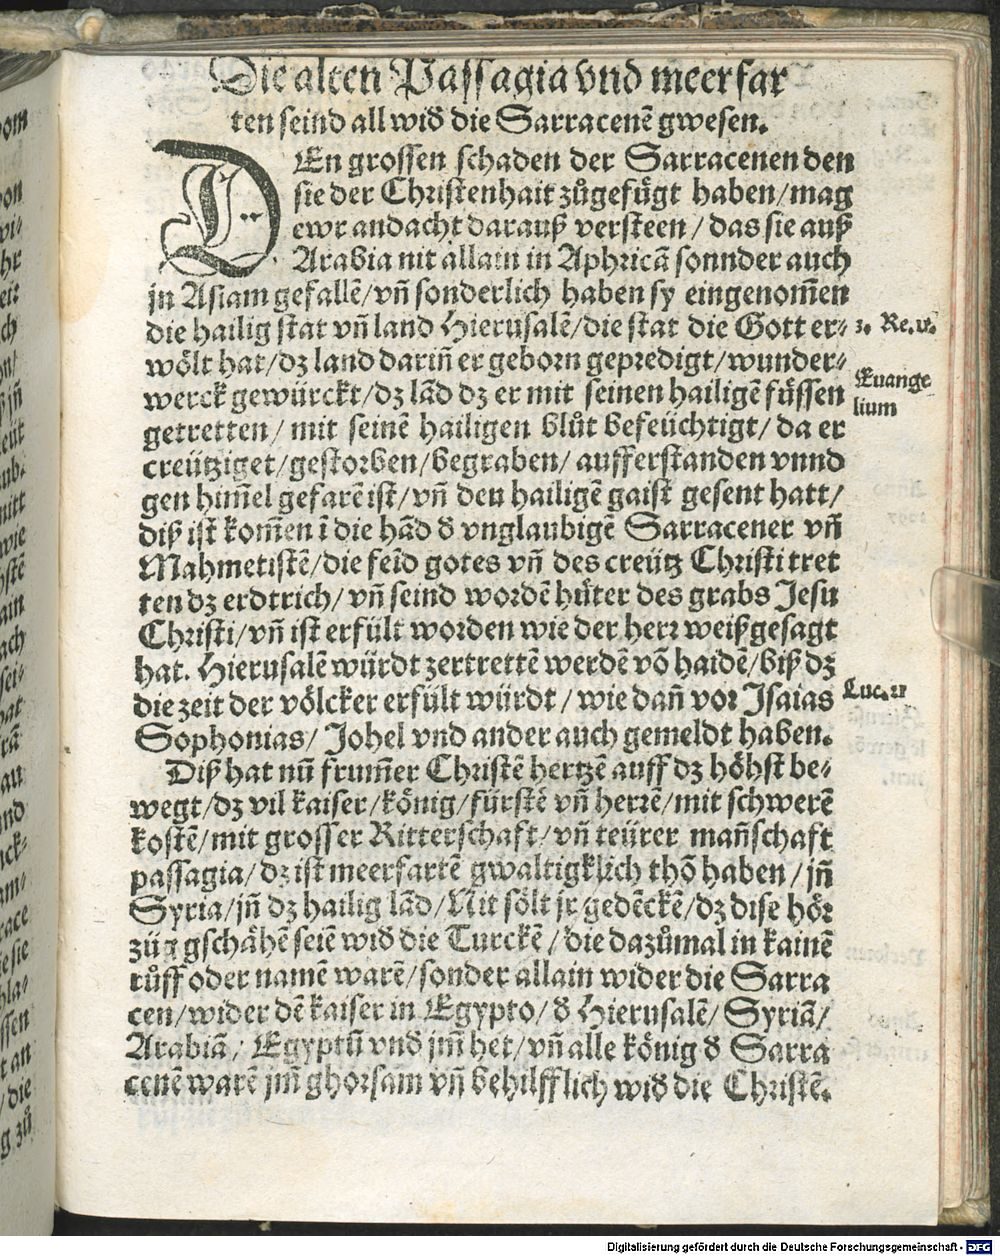 Die alten Passagia vnd meerfar
ten seind all wid᷒ die Sarracenẽ gwesen.
DEn grossen schaden der Sarracenen den
sie der Christenhait zůgefügt haben/mag
ewr andacht darauß versteen/das sie auß
Arabia nit allain in Aphricã sonnder auch
jn Asiam gefallẽ/vñ sonderlich haben sy eingenom̃en
die hailig stat vñ land Hierusalẽ/die stat die Gott er⸗
wölt hat/dz land dariñ er geborn gepredigt/wunder⸗
werck gewürckt/dz lãd dz er mit seinen hailigẽ füssen
getretten/mit seinẽ hailigen blůt befeüchtigt/da er
creütziget/gestorben/begraben/aufferstanden vnnd
gen him̃el gefarẽ ist/vñ den hailigẽ gaist gesent hatt/
diß ist kom̃en ĩ die hãd d᷒ vnglaubigẽ Sarracener vñ
Mahmetistẽ/die feĩd gotes vñ des creütz Christi tret
ten dz erdtrich/vñ seind wordẽ hüter des grabs Jesu
Christi/vñ ist erfült worden wie der herr weißgesagt
hat. Hierusalẽ würdt zertrettẽ werdẽ võ haidẽ/biß dz
die zeit der völcker erfült würdt/wie dañ vor Isaias
Sophonias/Johel vnd ander auch gemeldt haben.
Diß hat nũ frum̃er Christẽ hertzẽ auff dz höhst be⸗
wegt/dz vil kaiser/könig/fürstẽ vñ herrẽ/mit schwerẽ
kostẽ/mit grosser Ritterschaft/vñ teürer mañschaft
passagia/dz ist meerfartẽ gwaltigklich thõ haben/jñ
Syria/jñ dz hailig lãd/Nit sölt jr gedẽckẽ/dz dise hör
züg gschähẽ seiẽ wid᷒ die Turckẽ/die dazůmal in kainẽ
růff oder namẽ warẽ/sonder allain wider die Sarra
cen/wider dẽ kaiser in Egypto/d᷒ Hierusalẽ/Syriã/
Arabiã/Egyptũ vnd jm̃ het/vñ alle könig d᷒ Sarra
cenẽ warẽ jm̃ ghorsam vñ behilfflich wid᷒ die Christẽ.
3. Re. v.
Euange
lium
Luc. 21
Digitalisierung gefördert durch die Deutsche Forschungsgemeinschaft - DFG